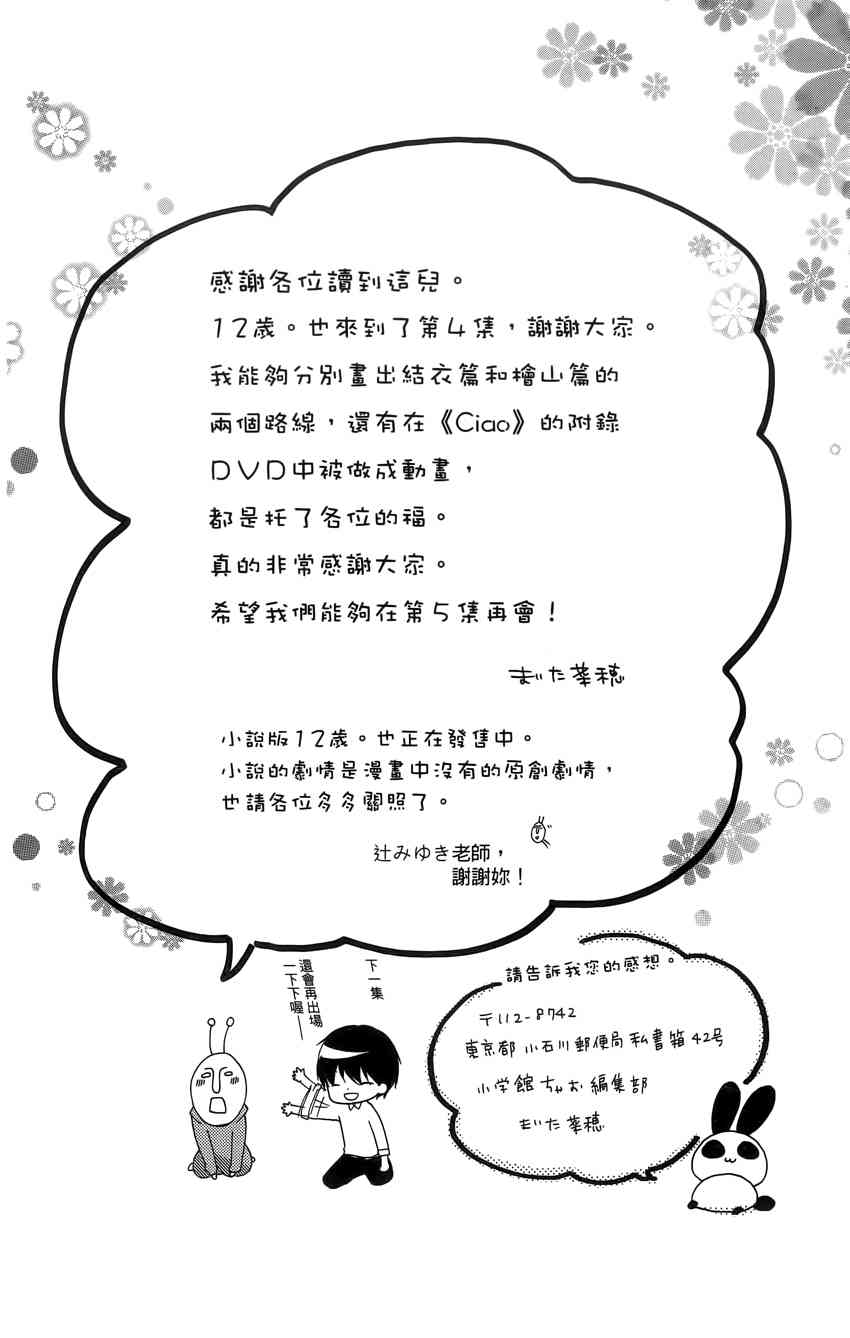 感謝各位讀到這兒。
12歲。也來到了第4集，謝謝大家。
我能夠分別畫出結衣篇和檜山篇的
兩個路線，還有在《Ciao》的附錄
DVD中被做成動畫，
都是托了各位的福。
真的非常感謝大家。
希望我們能夠在第5集再會！
まいた菜穂
小說版12歲。也正在發售中。
小說的劇情是漫畫中沒有的原創劇情，
也請各位多多關照了。
辻みゆき老師，
謝謝妳！
下一集
還會再出場
一下下喔——
請告訴我您的感想。
〒112-8742
東京都 小石川郵便局 私書箱 42号
小学館 ちゃお 編集部
まいた菜穂